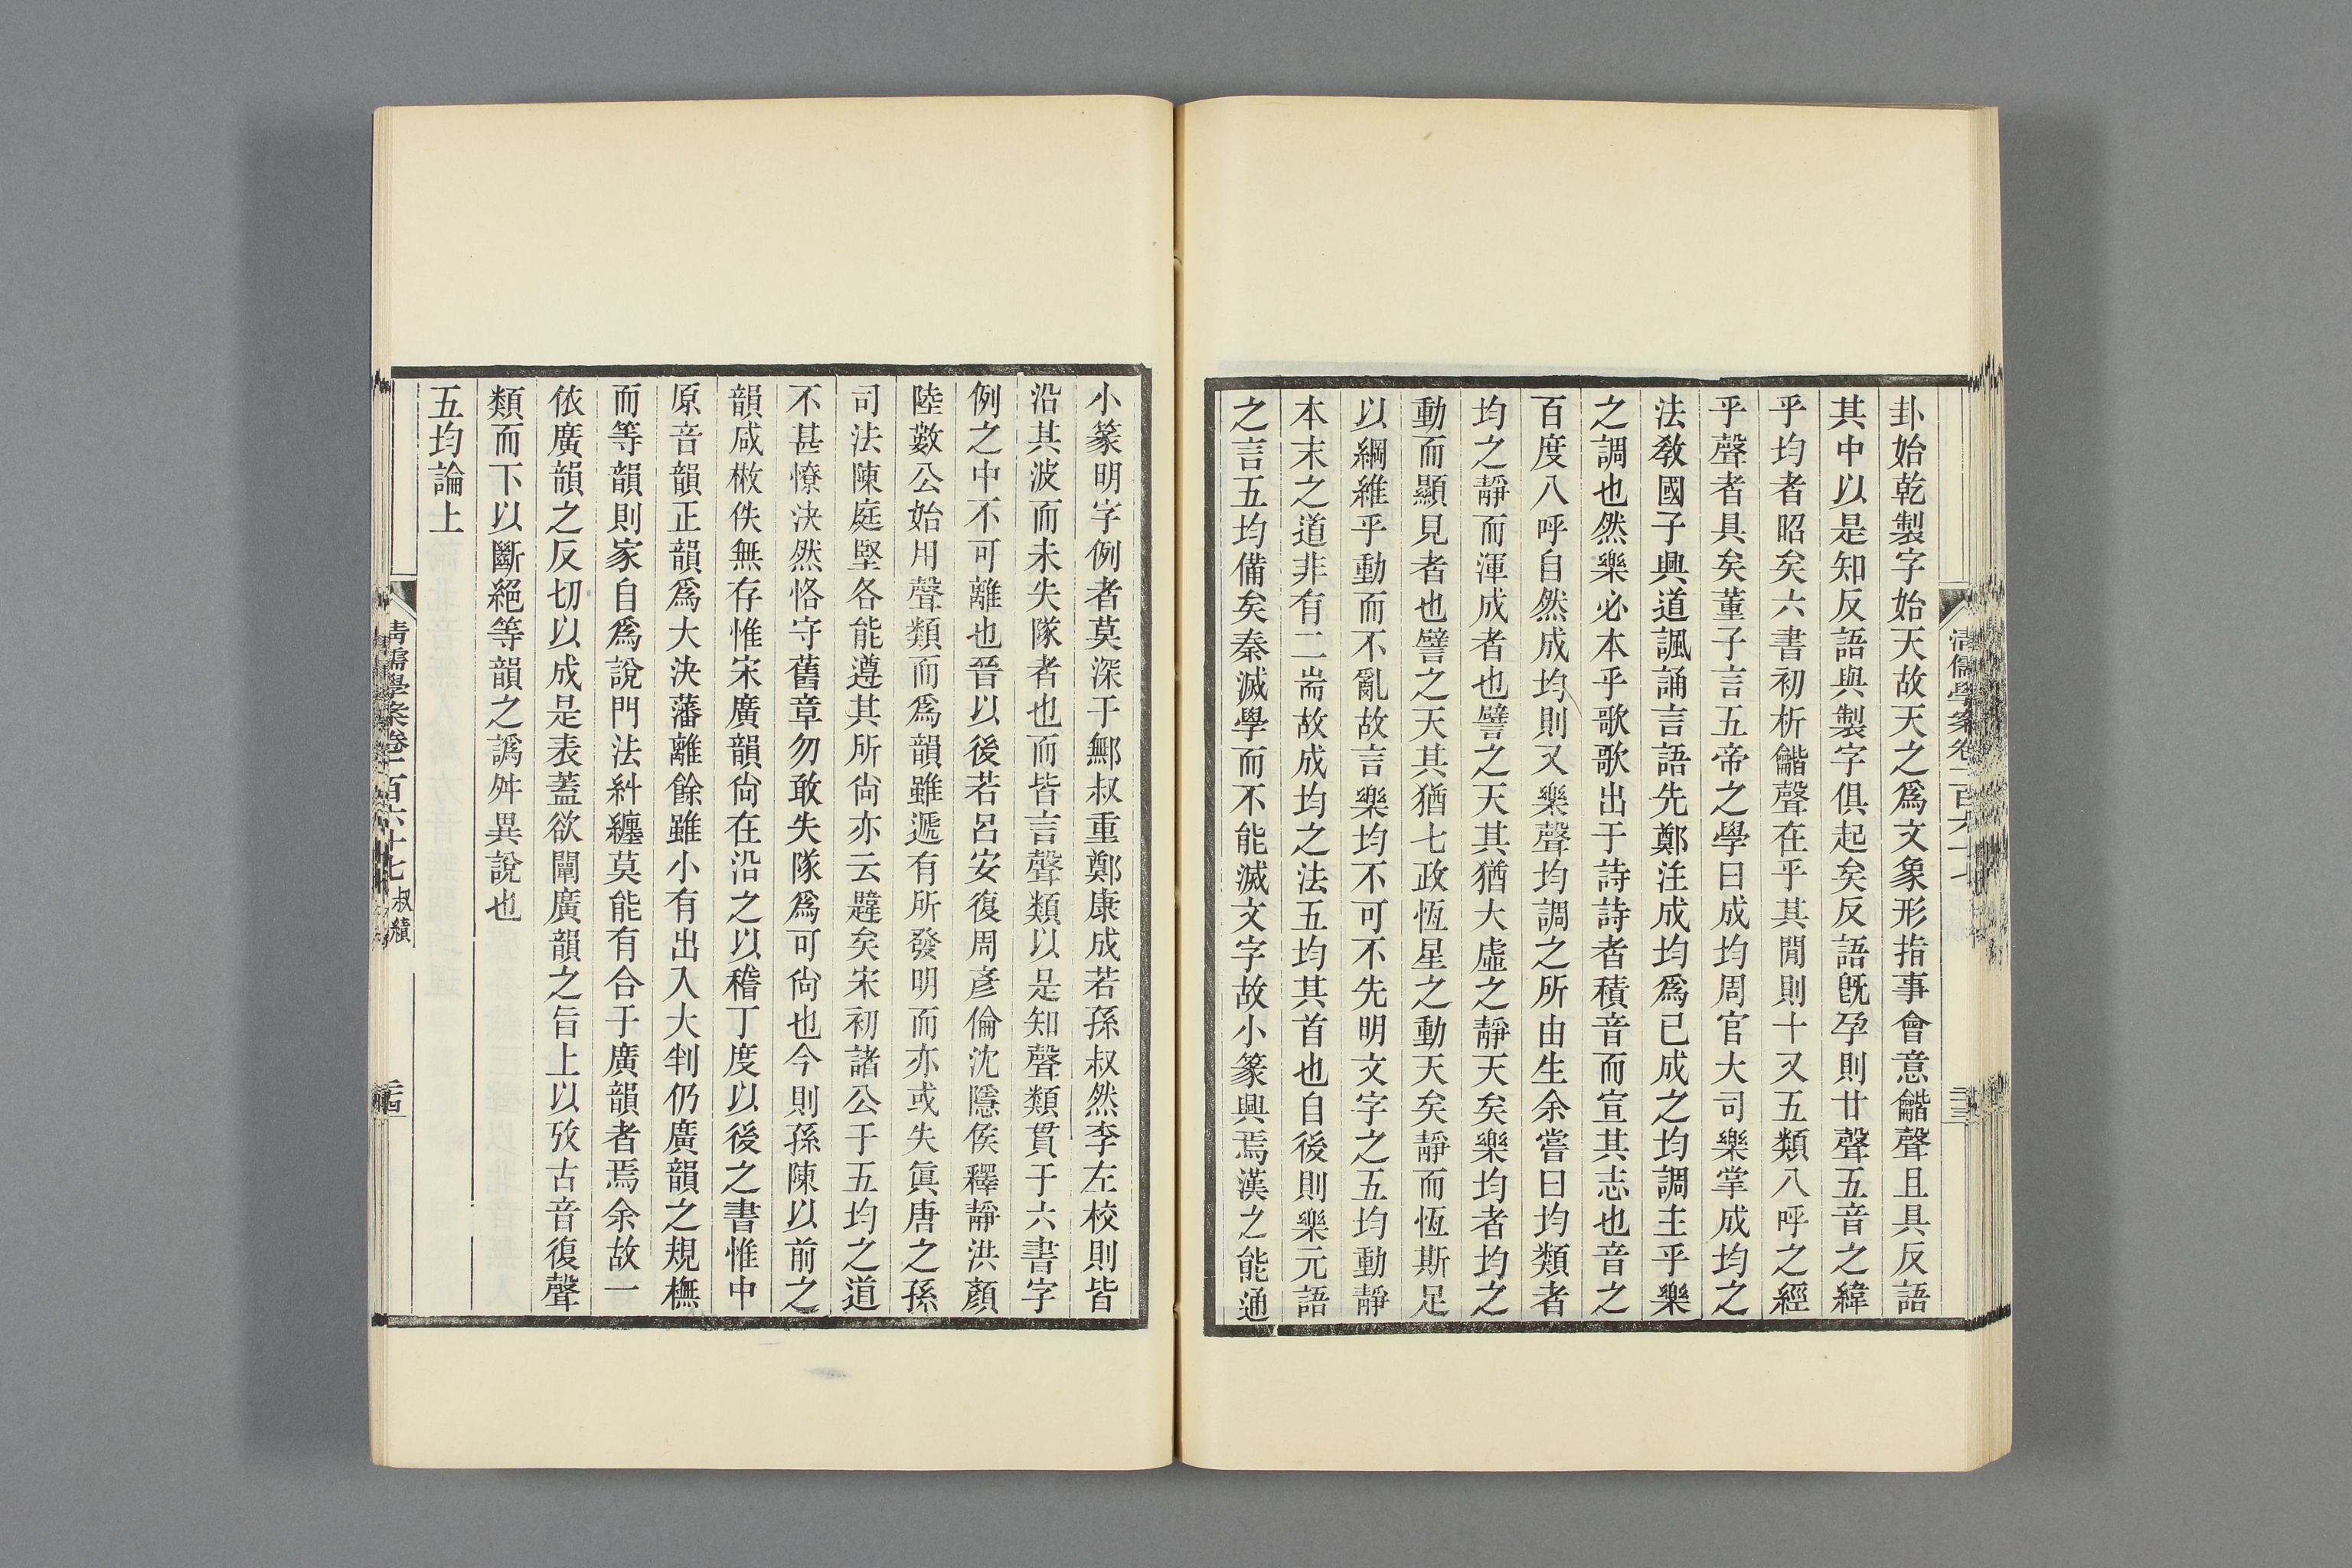 卦始乾製字始天故天之爲文象形指事會意龤聲且具反語
其中以是知反語與製字俱起矣反語旣孕則廿聲五音之緯
乎均者昭矣六書初析龤聲在乎其閒則十又五類八呼之經
乎聲者具矣董子言五帝之學曰成均周官大司樂掌成均之
法敎國子興道諷誦言語先鄭注成均爲已成之均調主乎樂
之調也然樂必本乎歌歌出于詩詩者積音而宣其志也音之
百度八呼自然成均則又樂聲均調之所由生余嘗曰均類者
均之靜而渾成者也譬之天其猶大虛之靜天矣樂均者均之
動而顯見者也譬之天其猶七政恆星之動天矣靜而恆斯足
以綱維乎動而不亂故言樂均不可不先明文字之五均動靜
本末之道非有二耑故成均之法五均其首也自後則樂元語
之言五均備矣秦滅學而不能滅文字故小篆興焉漢之能通
清儒學案卷一百六十七
小篆明字例者莫深于鄦叔重鄭康成若孫叔然李左校則皆
沿其波而未失隊者也而皆言聲類以是知聲類貫于六書字
例之中不可離也晉以後若呂安復周彥倫沈隱侯釋靜洪顏
陸數公始用聲類而爲韻雖遞有所發明而亦或失眞唐之孫
司法陳庭堅各能遵其所尙亦云韙矣宋初諸公于五均之道
不甚憭決然恪守舊章勿敢失隊爲可尙也今則孫陳以前之
韻咸㪚佚無存惟宋廣韻尙在沿之以稽丁度以後之書惟中
原音韻正韻爲大決藩離餘雖小有出入大判仍廣韻之規橅
而等韻則家自爲說門法糾纏莫能有合于廣韻者焉余故一
依廣韻之反切以成是表蓋欲闡廣韻之旨上以攷古音復聲
類而下以斷絕等韻之譌舛異說也
五均論上
清儒學案卷一百六十七 叔績